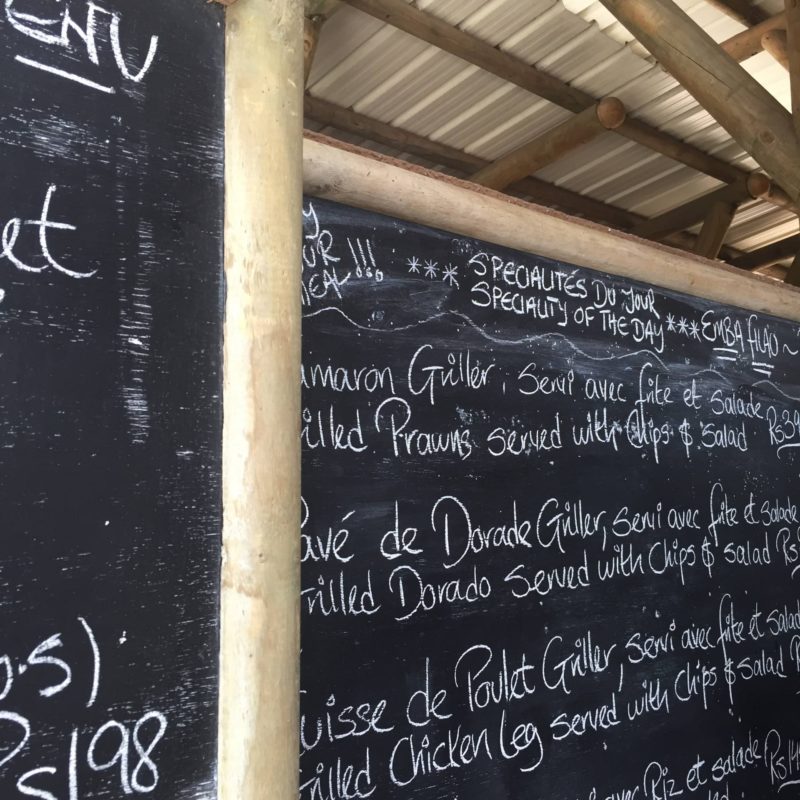 ENU
et
0.5)
Rs198
UR
MEAL!!!
*** SPECIALITÉS DU JOUR
SPECIALITY OF THE DAY *** EMBA FILAO ~
maron Griller, servi avec frite et salade
illed Prawns served with Chips & salad Rs39
avé de Dorade Griller, servi avec frite et salade
rilled Dorado served with Chips & salad Rs
uisse de Poulet Griller, servi avec frite et salad
rilled Chicken Leg served with Chips & salad
avec Riz et salade Rs14